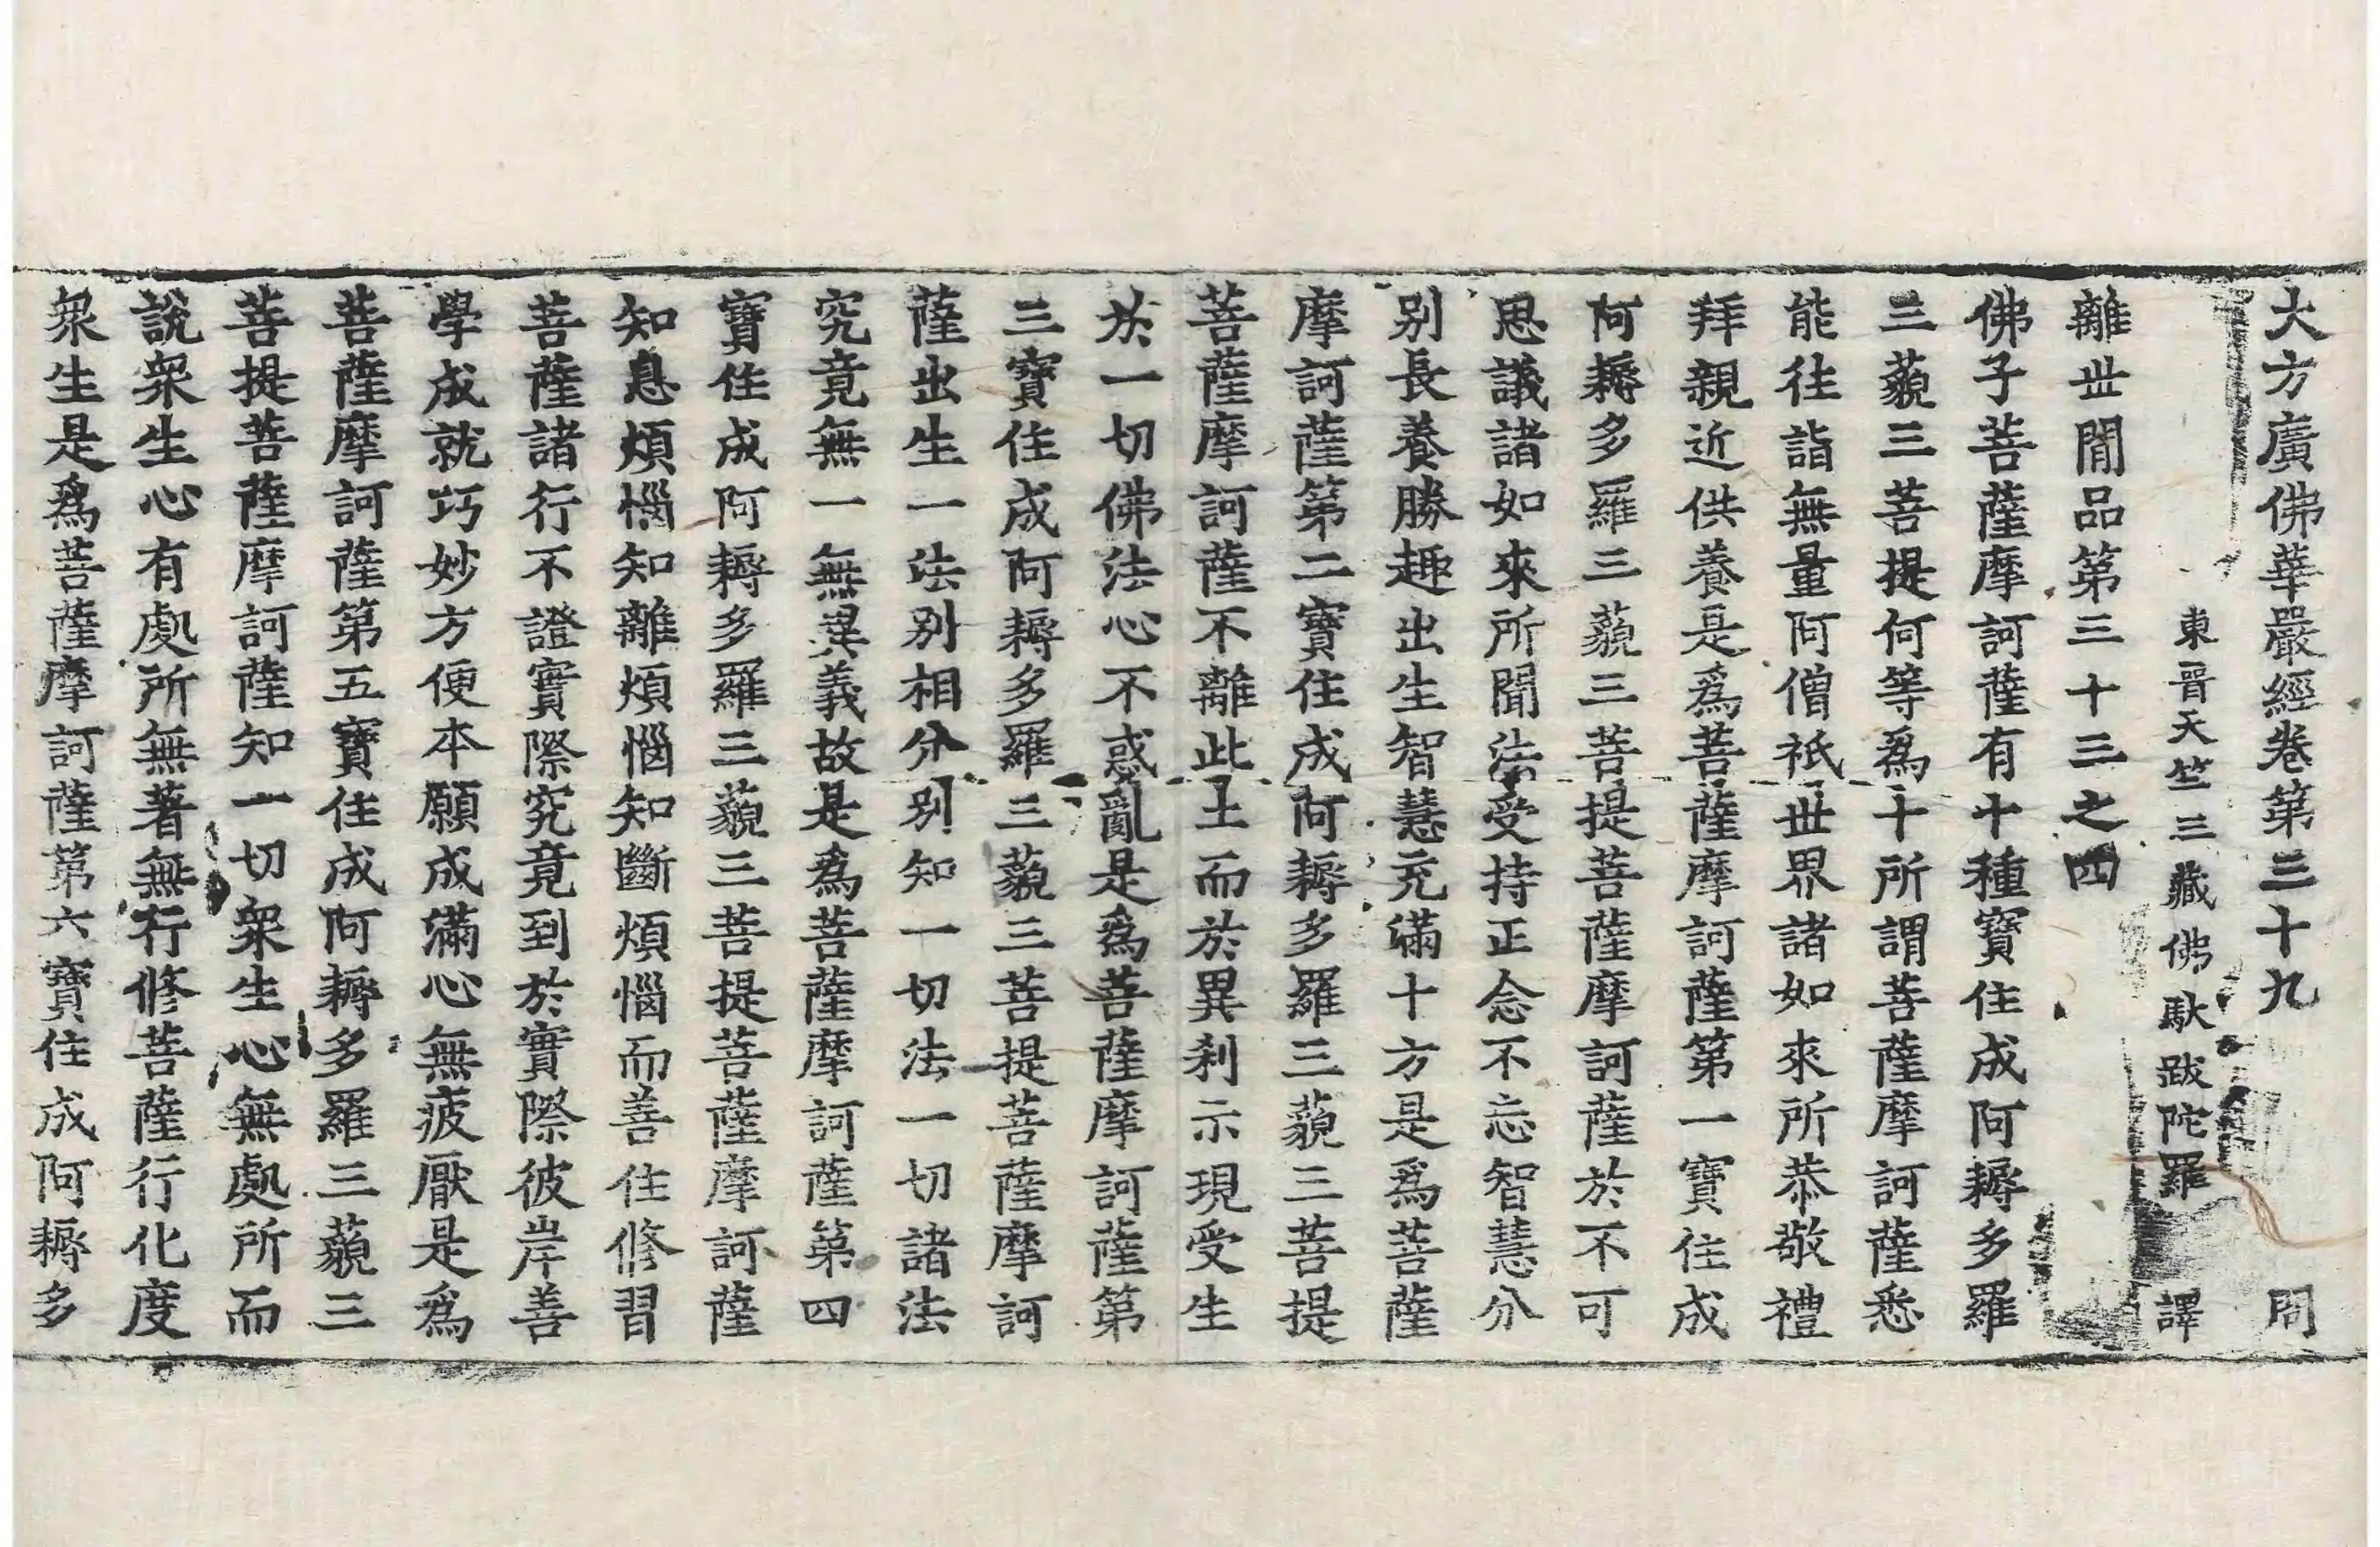 大方廣佛華嚴經卷第三十九 問
東晉天竺三藏佛馱跋陀羅 譯
離世間品第三十三之四
佛子菩薩摩訶薩有十種寶住成阿耨多羅
三藐三菩提何等爲十所謂菩薩摩訶薩悉
能往詣無量阿僧祇世界諸如來所恭敬禮
拜親近供養是爲菩薩摩訶薩第一寶住成
阿耨多羅三藐三菩提菩薩摩訶薩於不可
思議諸如來所聞法受持正念不忘智慧分
别長養勝趣出生智慧充滿十方是爲菩薩
摩訶薩第二寶住成阿耨多羅三藐三菩提
菩薩摩訶薩不離此土而於異刹示現受生
於一切佛法心不惑亂是爲菩薩摩訶薩第
三寶住成阿耨多羅三藐三菩提菩薩摩訶
薩出生一法别相分别知一切法一切諸法
究竟無一無異義故是爲菩薩摩訶薩第四
寶住成阿耨多羅三藐三菩提菩薩摩訶薩
知息煩惱知離煩惱知斷煩惱而善住修習
菩薩諸行不證實際究竟到於實際彼岸善
學成就巧妙方便本願成滿心無疲厭是爲
菩薩摩訶薩第五寶住成阿耨多羅三藐三
菩提菩薩摩訶薩知一切衆生心無處所而
說衆生心有處所無著無行修菩薩行化度
衆生是爲菩薩摩訶薩第六寶住成阿耨多